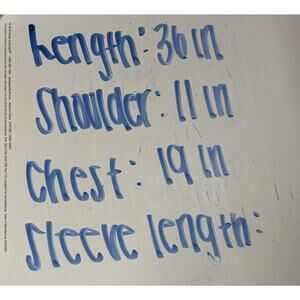 Length: 36 in
Shoulder: 11 in
Chest: 19 in
Sleeve length: